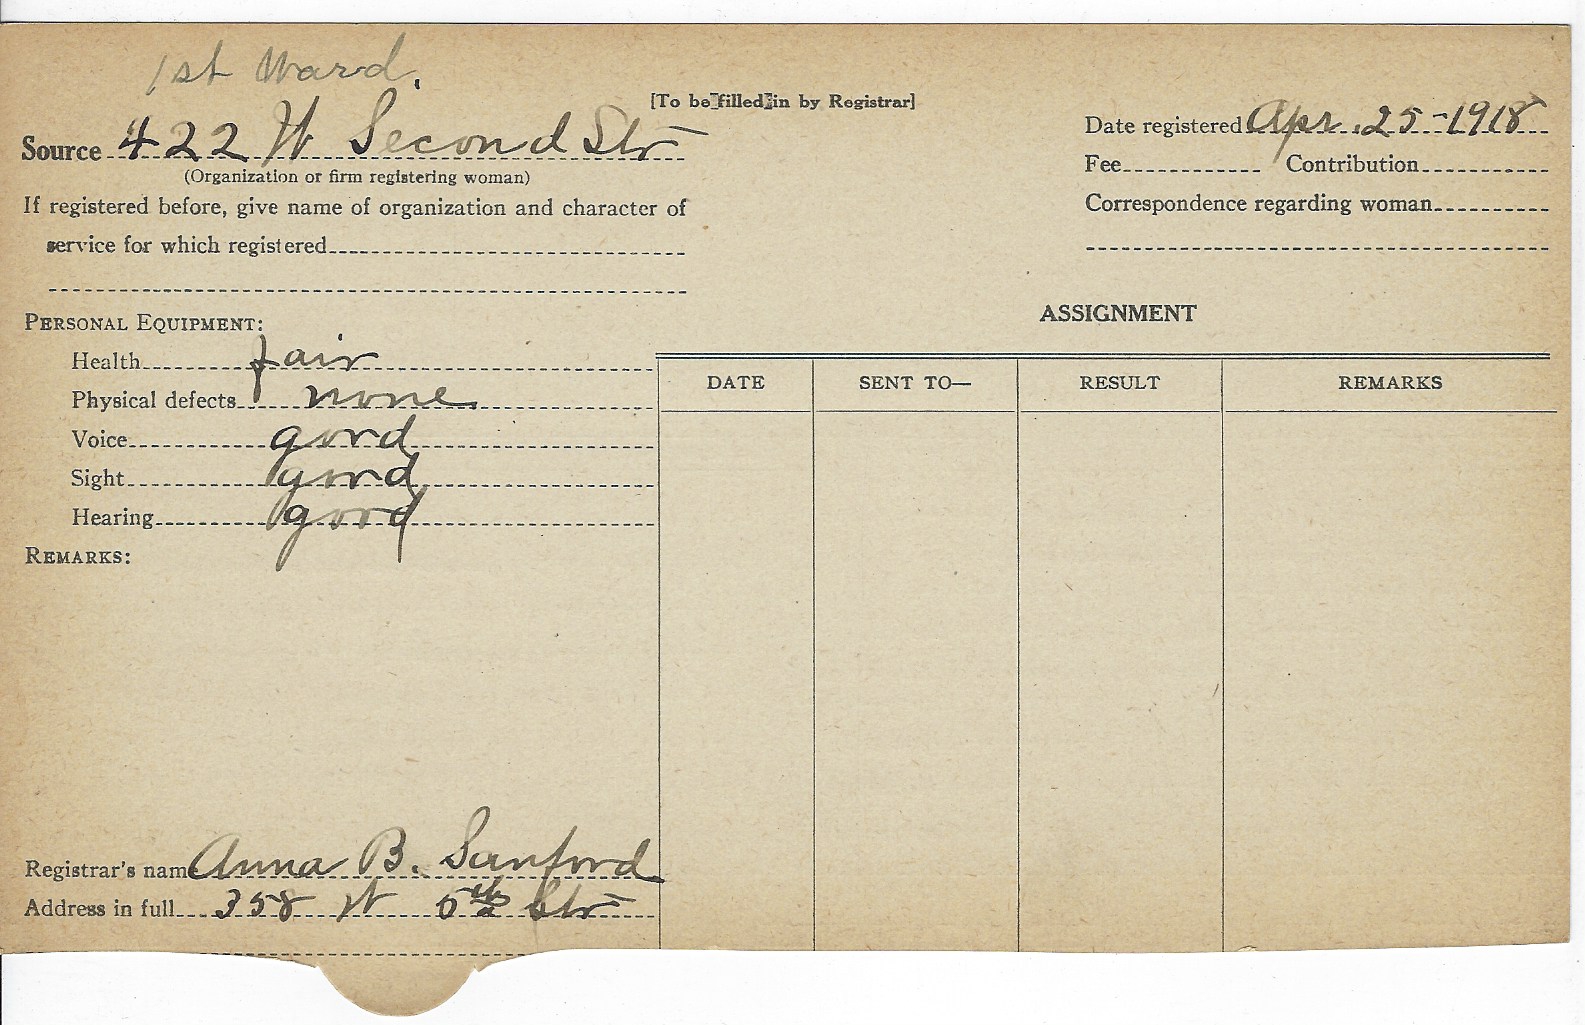 1st Ward.
[To be filled in by Registrar]
Source 422 W Second Str
(Organization or firm registering woman)
If registered before, give name of organization and character of
service for which registered
Date registered Apr. 25-1918
Fee Contribution
Correspondence regarding woman
PERSONAL EQUIPMENT:
Health fair
Physical defects none
Voice good
Sight good
Hearing good
REMARKS:
ASSIGNMENT
DATE SENT TO— RESULT REMARKS
Registrar's name Anna B. Sanford
Address in full 358 W 5th Str